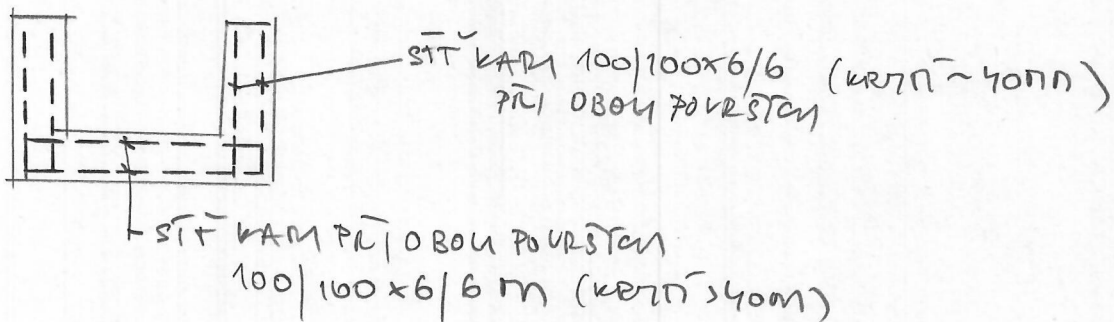 SÍŤ KARI 100/100x6/6 (KRYTÍ ~ 40mm)
PŘI OBOU POVRŠÍCH
SÍŤ KARI PŘI OBOU POVRŠÍCH
100/100x6/6 m (KRYTÍ > 40mm)